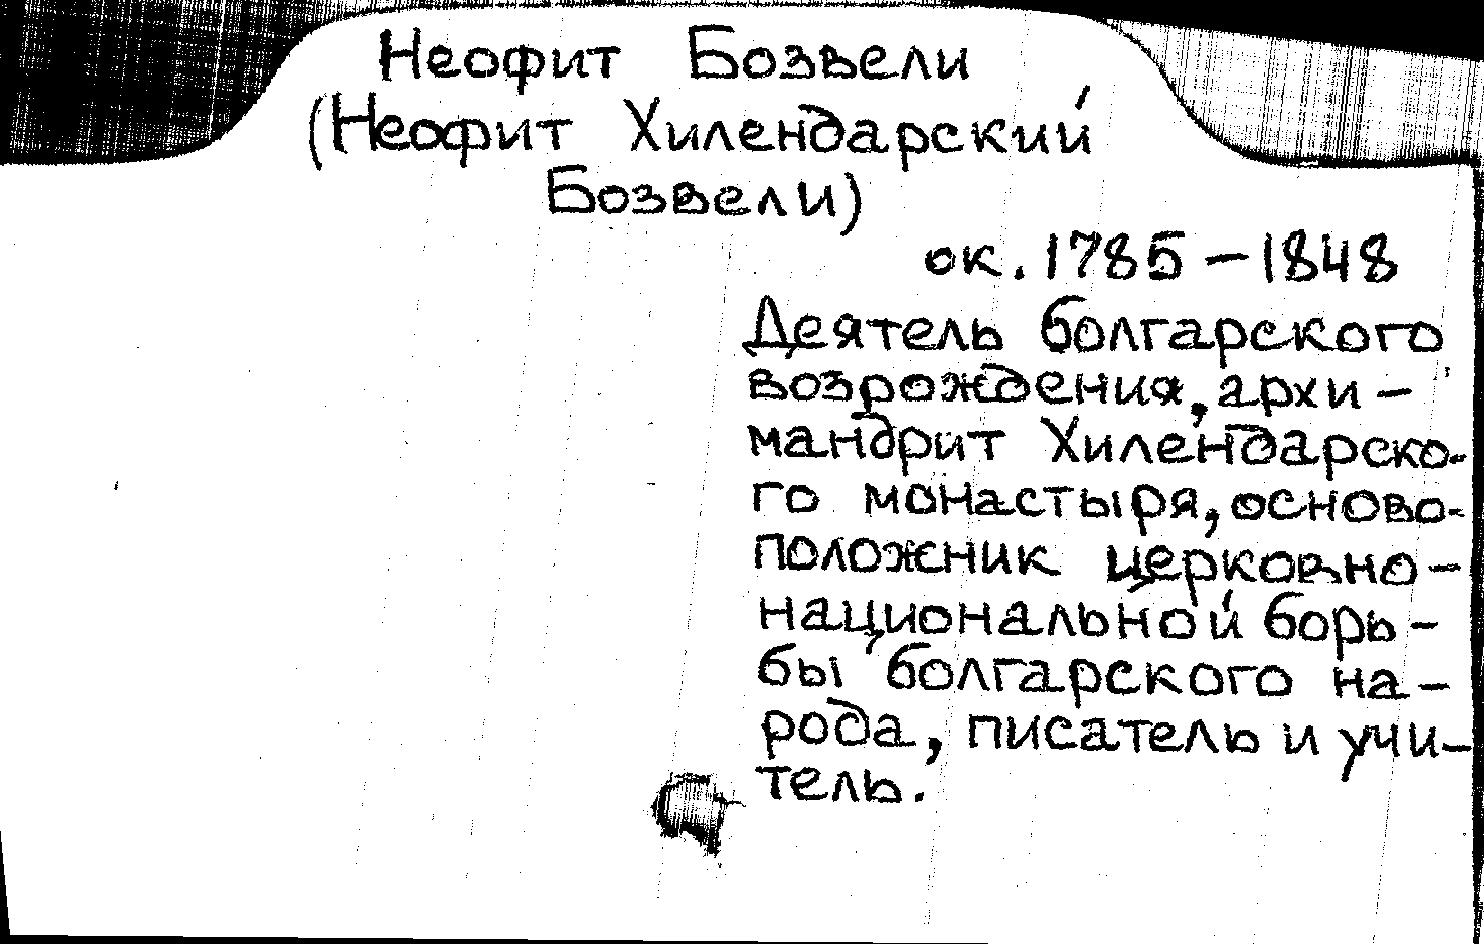 Неофит Бозвели
(Неофит Хилендарский
Бозвели)
ок. 1785 – 1848
Деятель болгарского
возрождения, архи-
мандрит Хилендарско-
го монастыря, осново-
положник церковно-
национальной борь-
бы болгарского на-
рода, писатель и учи-
тель.